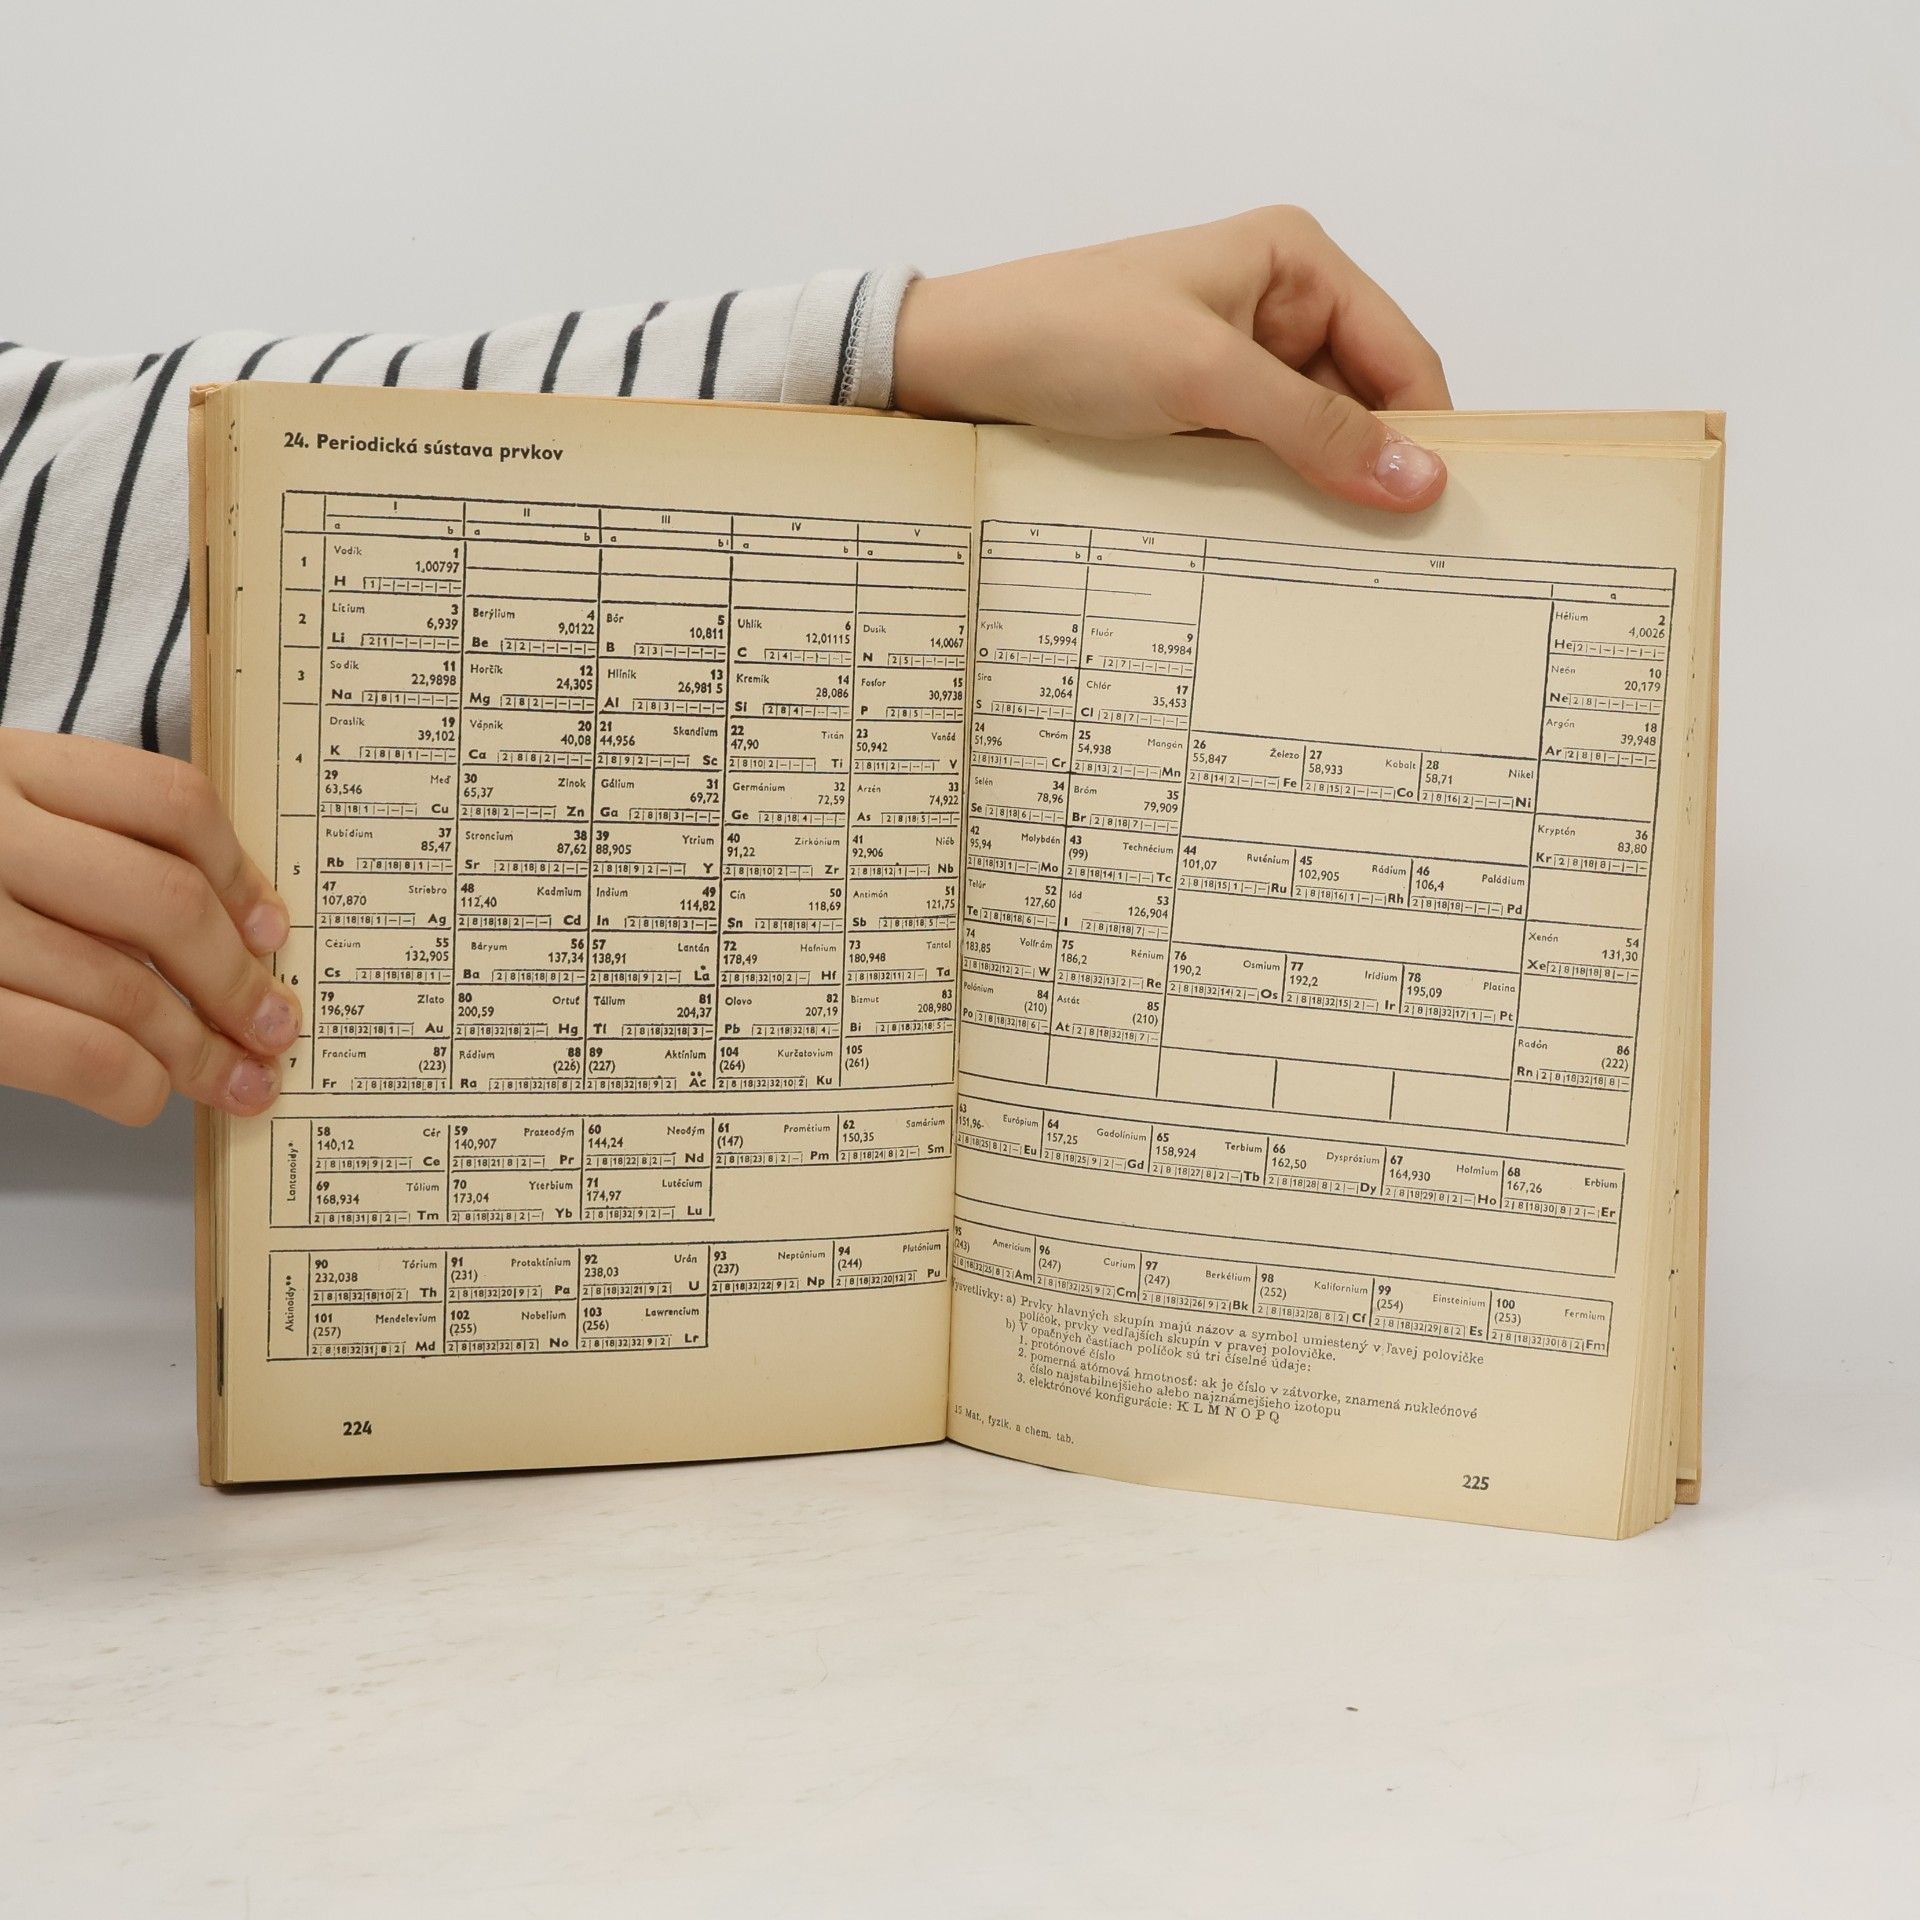 24. Periodická sústava prvkov
I II III IV V
a b a b a b a b a b
1 Vodík 1
1,00797
H 1
2 Lítium 3 Berýlium 4 Bór 5 Uhlík 6 Dusík 7
6,939 9,0122 10,811 12,01115 14,0067
Li 2 1 Be 2 2 B 2 3 C 2 4 N 2 5
3 Sodík 11 Horčík 12 Hliník 13 Kremík 14 Fosfor 15
22,9898 24,305 26,981 5 28,086 30,9738
Na 2 8 1 Mg 2 8 2 Al 2 8 3 Si 2 8 4 P 2 8 5
4 Draslík 19 Vápnik 20 21 Skandium 22 Titán 23 Vanád
39,102 40,08 44,956 47,90 50,942
K 2 8 8 1 Ca 2 8 8 2 2 8 9 2 Sc 2 8 10 2 Ti 2 8 11 2 V
29 Meď 30 Zinok Gálium 31 Germánium 32 Arzén 33
63,546 65,37 69,72 72,59 74,922
2 8 18 1 Cu 2 8 18 2 Zn Ga 2 8 18 3 Ge 2 8 18 4 As 2 8 18 5
5 Rubídium 37 Stroncium 38 39 Ytrium 40 Zirkónium 41 Niób
85,47 87,62 88,905 91,22 92,906
Rb 2 8 18 8 1 Sr 2 8 18 8 2 2 8 18 9 2 Y 2 8 18 10 2 Zr 2 8 18 12 1 Nb
47 Striebro 48 Kadmium Indium 49 Cín 50 Antimón 51
107,870 112,40 114,82 118,69 121,75
2 8 18 18 1 Ag 2 8 18 18 2 Cd In 2 8 18 18 3 Sn 2 8 18 18 4 Sb 2 8 18 18 5
6 Cézium 55 Báryum 56 57 Lantán 72 Hafnium 73 Tantal
132,905 137,34 138,91 178,49 180,948
Cs 2 8 18 18 8 1 Ba 2 8 18 18 8 2 2 8 18 18 9 2 La 2 8 18 32 10 2 Hf 2 8 18 32 11 2 Ta
79 Zlato 80 Ortuť Tálium 81 Olovo 82 Bizmut 83
196,967 200,59 204,37 207,19 208,980
2 8 18 32 18 1 Au 2 8 18 32 18 2 Hg Tl 2 8 18 32 18 3 Pb 2 2 18 32 18 4 Bi 2 8 18 32 18 5
7 Francium 87 Rádium 88 89 Aktínium 104 Kurčatovium 105
(223) (226) (227) (264) (261)
Fr 2 8 18 32 18 8 1 Ra 2 8 18 32 18 8 2 2 8 18 32 18 9 2 Ac 2 8 18 32 32 10 2 Ku
Lantanoidy*
58 Cér 59 Prazeodým 60 Neodým 61 Prométium 62 Samárium
140,12 140,907 144,24 (147) 150,35
2 8 18 19 9 2 Ce 2 8 18 21 8 2 Pr 2 8 18 22 8 2 Nd 2 8 18 23 8 2 Pm 2 8 18 24 8 2 Sm
69 Túlium 70 Yterbium 71 Lutécium
168,934 173,04 174,97
2 8 18 31 8 2 Tm 2 8 18 32 8 2 Yb 2 8 18 32 9 2 Lu
Aktinoidy**
90 Tórium 91 Protaktínium 92 Urán 93 Neptúnium 94 Plutónium
232,038 (231) 238,03 (237) (244)
2 8 18 32 18 10 2 Th 2 8 18 32 20 9 2 Pa 2 8 18 32 21 9 2 U 2 8 18 32 22 9 2 Np 2 8 18 32 20 12 2 Pu
101 Mendelevium 102 Nobelium 103 Lawrencium
(257) (255) (256)
2 8 18 32 31 8 2 Md 2 8 18 32 32 8 2 No 2 8 18 32 32 9 2 Lr
224
VI VII VIII
a b a b a
a
Hélium 2
4,0026
He 2
Kyslík 8 Fluór 9 Neón 10
15,9994 18,9984 20,179
O 2 6 F 2 7 Ne 2 8
Síra 16 Chlór 17 Argón 18
32,064 35,453 39,948
S 2 8 6 Cl 2 8 7 Ar 2 8 8
24 Chróm 25 Mangán 26 Železo 27 Kobalt 28 Nikel
51,996 54,938 55,847 58,933 58,71
2 8 13 1 Cr 2 8 13 2 Mn 2 8 14 2 Fe 2 8 15 2 Co 2 8 16 2 Ni
Selén 34 Bróm 35 Kryptón 36
78,96 79,909 83,80
Se 2 8 18 6 Br 2 8 18 7 Kr 2 8 18 8
42 Molybdén 43 Technécium 44 Ruténium 45 Ródium 46 Paládium
95,94 (99) 101,07 102,905 106,4
2 8 18 13 1 Mo 2 8 18 14 1 Tc 2 8 18 15 1 Ru 2 8 18 16 1 Rh 2 8 18 18 Pd
Telúr 52 Jód 53 Xenón 54
127,60 126,904 131,30
Te 2 8 18 18 6 I 2 8 18 18 7 Xe 2 8 18 18 8
74 Volfrám 75 Rénium 76 Osmium 77 Irídium 78 Platina
183,85 186,2 190,2 192,2 195,09
2 8 18 32 12 2 W 2 8 18 32 13 2 Re 2 8 18 32 14 2 Os 2 8 18 32 15 2 Ir 2 8 18 32 17 1 Pt
Polónium 84 Astát 85 Radón 86
(210) (210) (222)
Po 2 8 18 32 18 6 At 2 8 18 32 18 7 Rn 2 8 18 32 18 8
63 Európium 64 Gadolínium 65 Terbium 66 Dysprózium 67 Holmium 68 Erbium
151,96 157,25 158,924 162,50 164,930 167,26
2 8 18 25 8 2 Eu 2 8 18 25 9 2 Gd 2 8 18 27 8 2 Tb 2 8 18 28 8 2 Dy 2 8 18 29 8 2 Ho 2 8 18 30 8 2 Er
95 Americium 96 Curium 97 Berkélium 98 Kalifornium 99 Einsteinium 100 Fermium
(243) (247) (247) (252) (254) (253)
2 8 18 32 25 8 2 Am 2 8 18 32 25 9 2 Cm 2 8 18 32 26 9 2 Bk 2 8 18 32 28 8 2 Cf 2 8 18 32 29 8 2 Es 2 8 18 32 30 8 2 Fm
Vysvetlivky: a) Prvky hlavných skupín majú názov a symbol umiestený v ľavej polovičke
políčok, prvky vedľajších skupín v pravej polovičke.
b) V opačných častiach políčok sú tri číselné údaje:
1. protónové číslo
2. pomerná atómová hmotnosť: ak je číslo v zátvorke, znamená nukleónové
číslo najstabilnejšieho alebo najznámejšieho izotopu
3. elektrónové konfigurácie: K L M N O P Q
15 Mat., fyzik. a chem. tab.
225